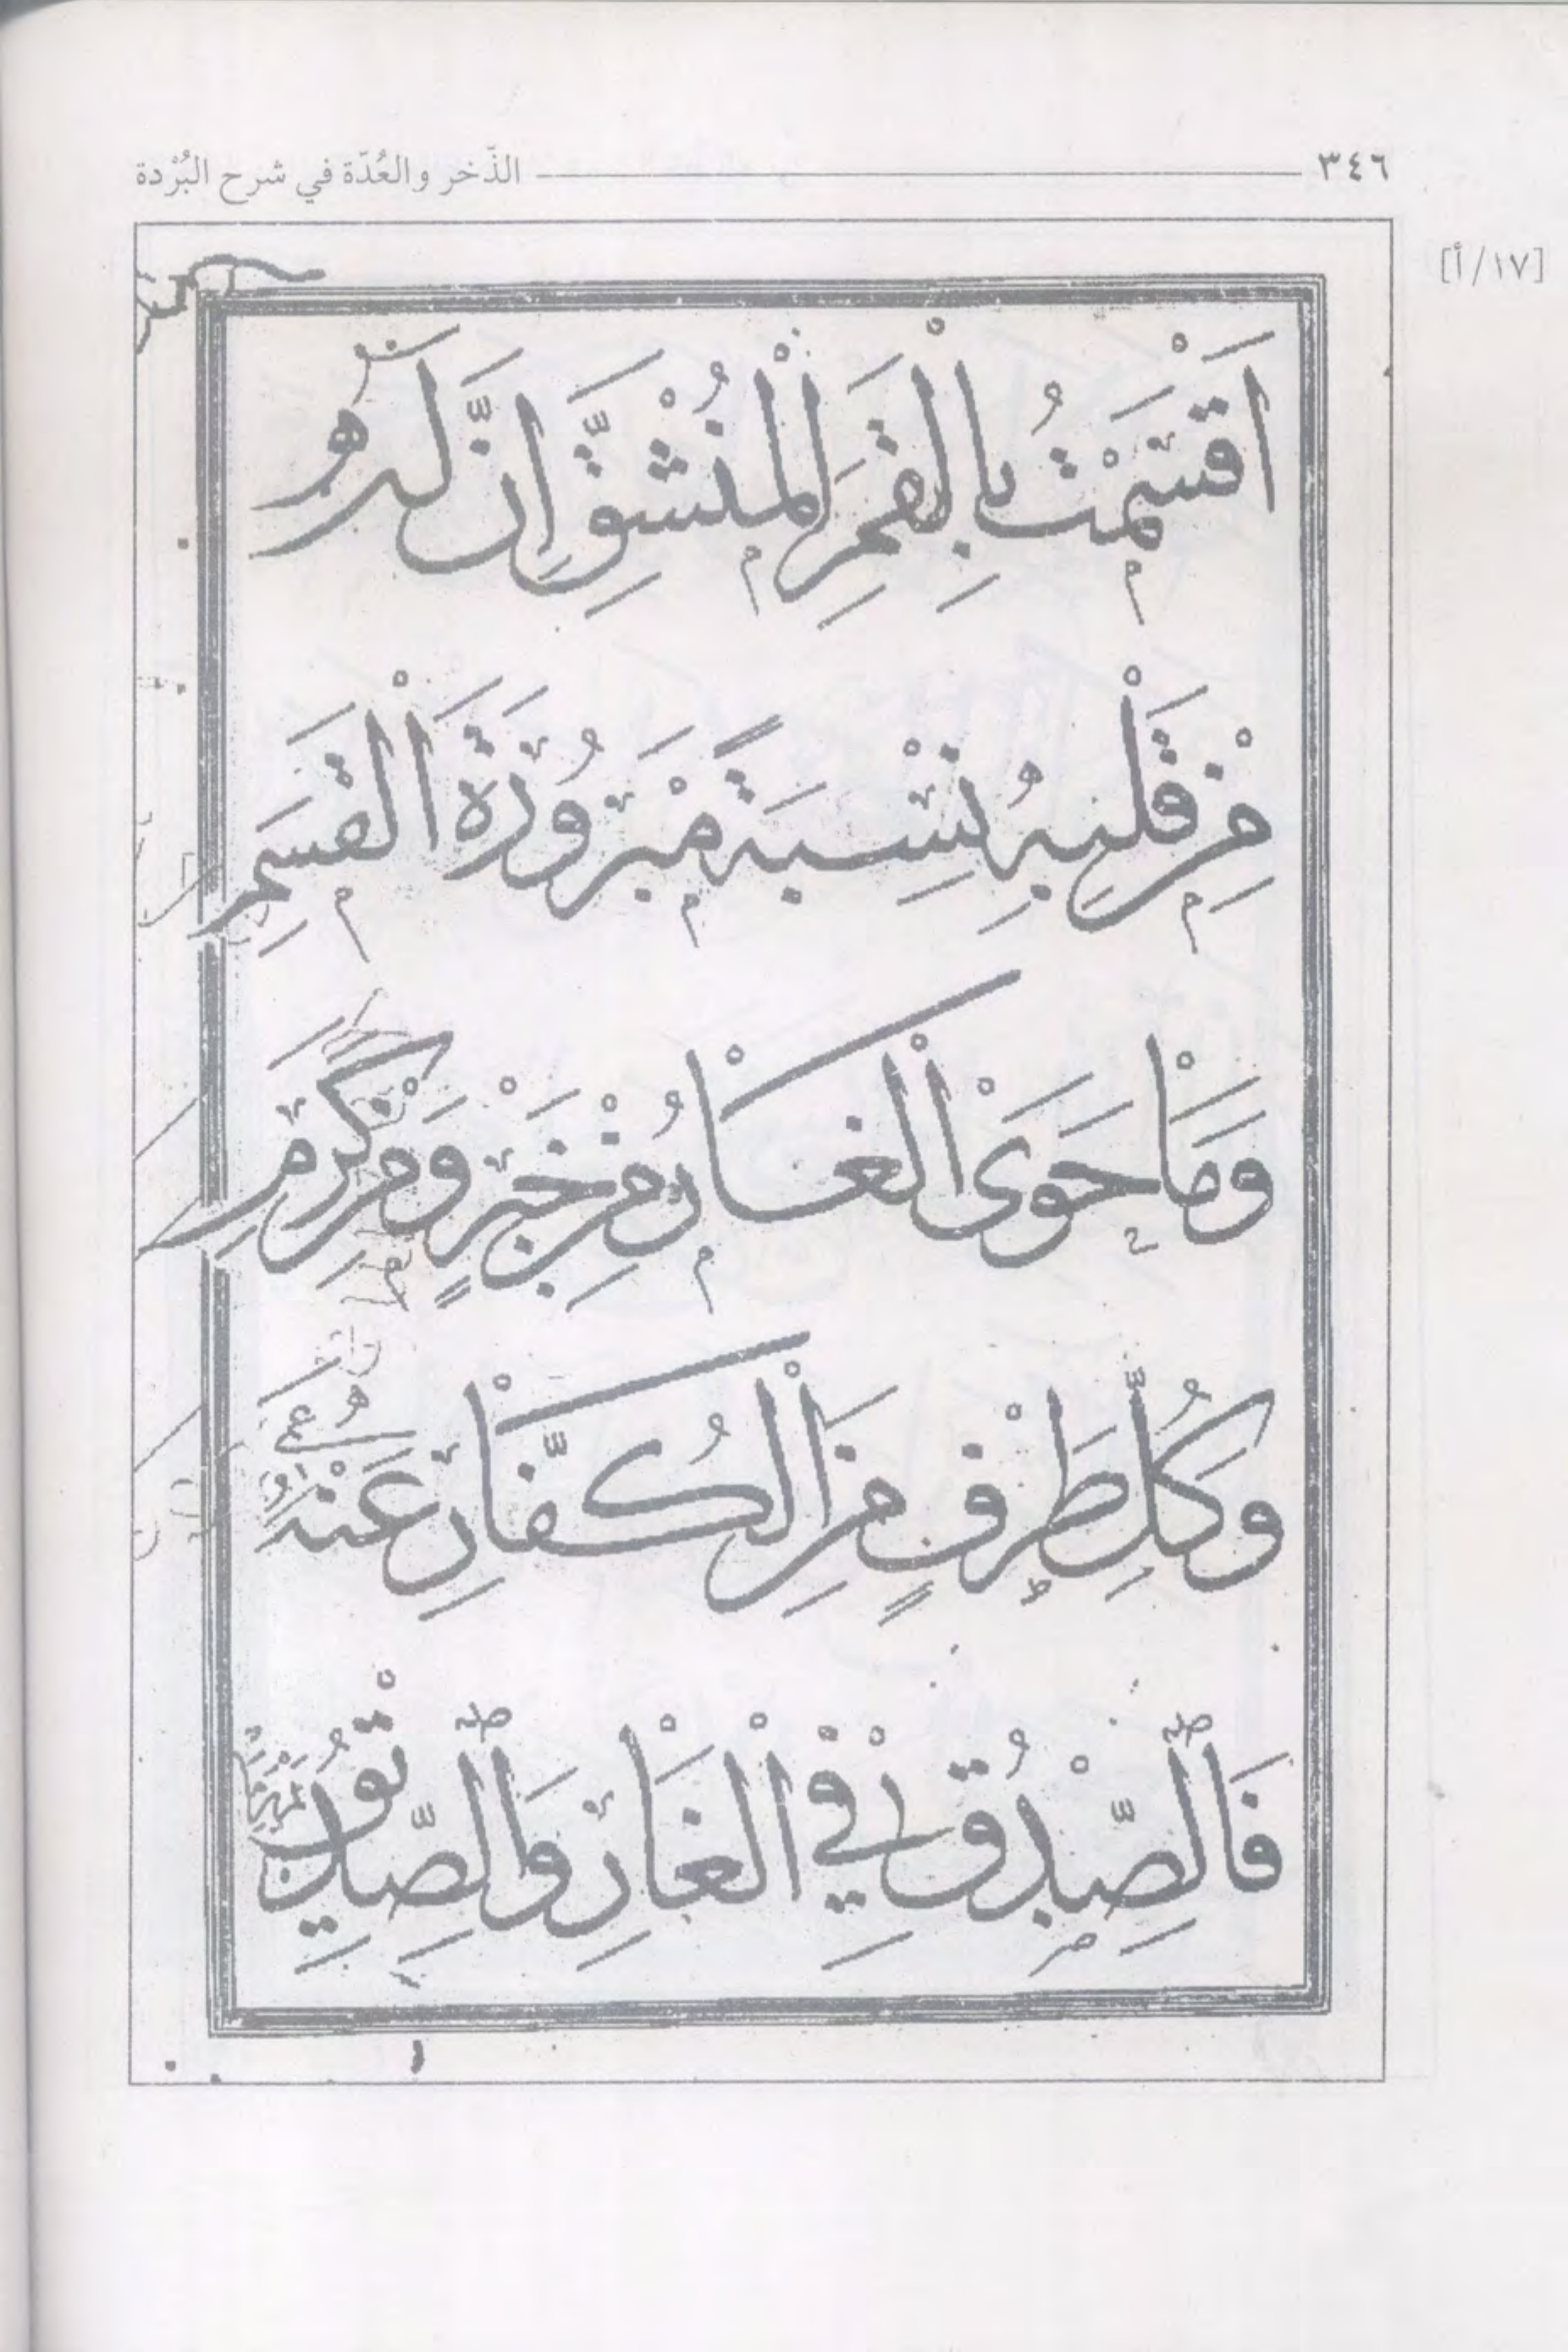 ٣٤٦
الذّخر والعُدّة في شرح البُرْدة
[١٧/أ]
اَقْسَمْتُ بِالْقَمَرِ الْمُنْشَقِّ اِنَّ لَهُ
مِنْ قَلْبِهِ نِسْبَةً مَبْرُورَةَ الْقَسَمِ
وَمَا حَوَى الْغَارُ مِنْ خَيْرٍ وَمِنْ كَرَمِ
وَكُلُّ طَرْفٍ مِنَ الْكُفَّارِ عَنْهُ عَمِى
فَالصِّدْقُ فِي الْغَارِ وَالصِّدِّيقُ